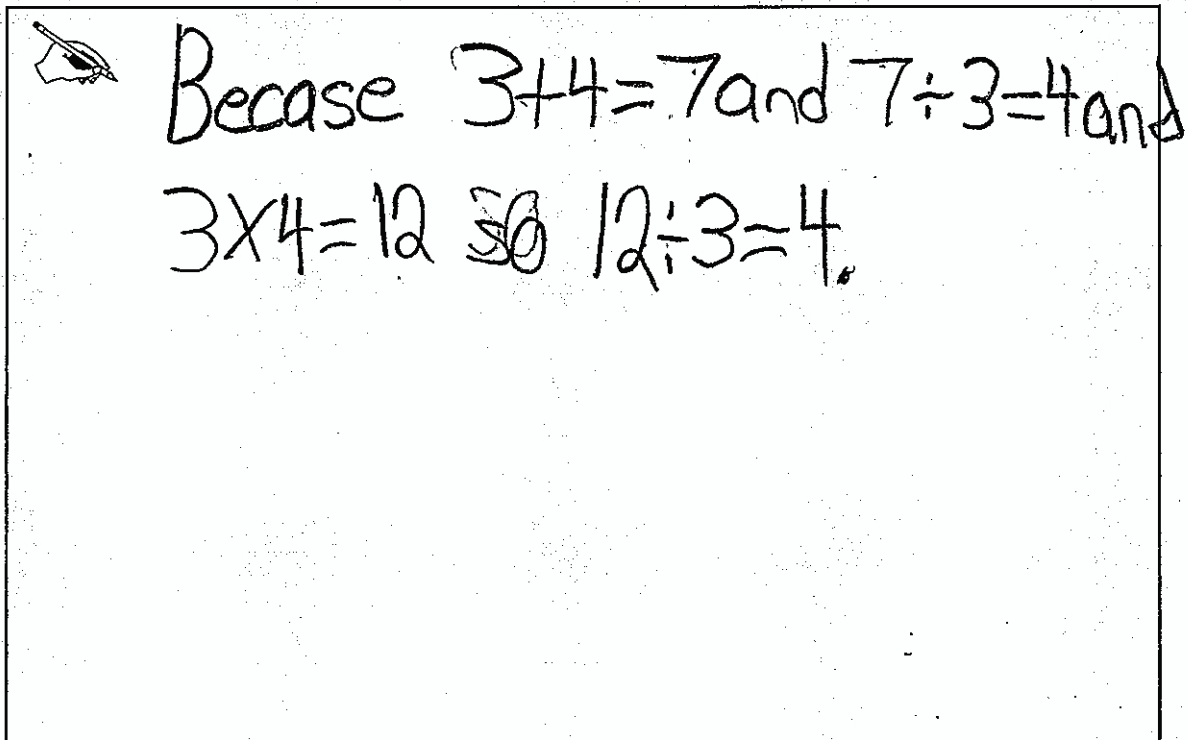 Becase 3+4=7 and 7÷3=4 and
3×4=12 so 12÷3=4.